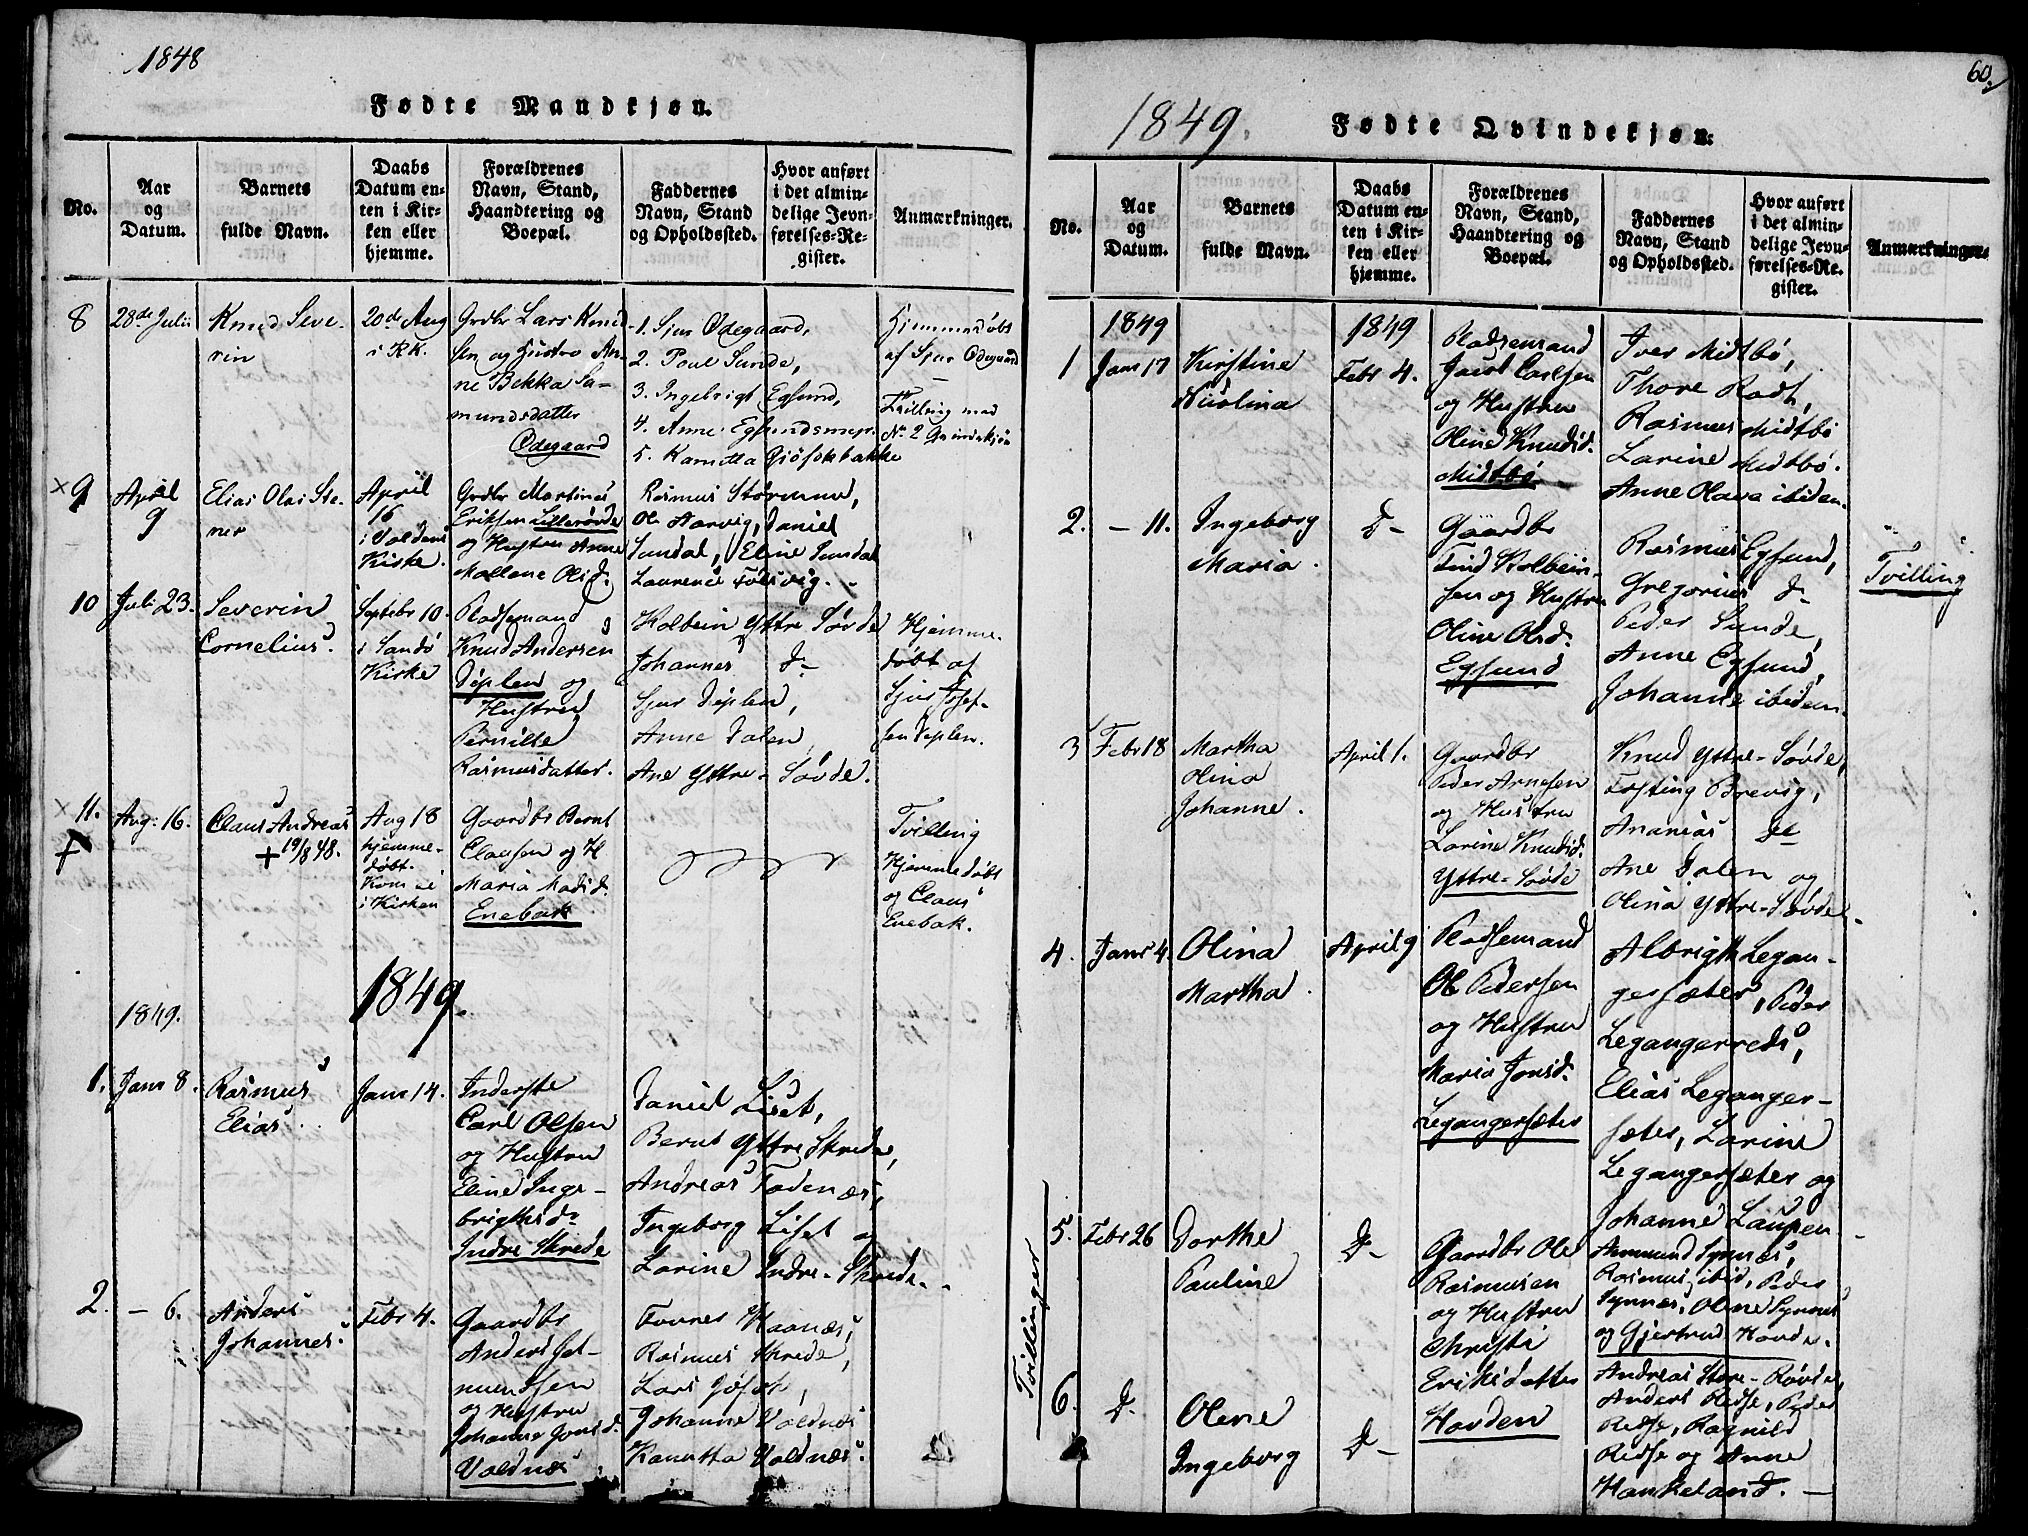 1848
Fødte Mandkjøn.
No.
Aar
og
Datum.
Barnets
fulde Navn.
Daabs
Datum en-
ten i Kir-
ken eller
hjemme.
Forældrenes
Navn, Stand,
Haandtering og
Boepæl.
Faddernes
Navn, Stand
og Opholdssted.
Hvor anført
i det almin-
delige Jevn-
førelses-Re-
gister.
Anmærkninger.
8
28de Julii
Knud Seve-
rin
20de Aug
i RK.
Grdbr Lars Knud
sen og Hustro An-
ne Bekka Sa-
mundsdatter
Ødegaard
1. Sjur Ødegaard,
2. Poul Sunde,
3. Ingebrigt Egsund,
4. Anne Egsund
5.
Hjemmedøbt
af Sjur Ødegaard
Tvilling med
No 2 Qvindekjøn
9
April
9
Elias Olai Ste-
ner
April
16
i Voldens
Kirke.
Grdbr Martinus
Eriksen Lillerøvde
og Hustru Anne
Mallene Olsd.
Rasmus
Ole Aarvig, Daniel
Sundal, Eline Sundal
10
Juli 23.
Severin
Cornelius.
Septebr 10
i Sandø
Kirke
Pladsemand
Knud Andersen
Døplen og
Hustrue
Pernille
Rasmusdatter.
Kolbein Yttre Søvde
Johannes d-
Sjur Døplen,
Anne Dalen,
Ane Yttre-Søvde.
Hjemme-
døbt af
Sjur Josef-
sen Døplen.
11.
Aug. 16.
Claus Andreas
+ 19/8 48.
Aug 18
hjemme-
døbt.
Kom ei
i Kirken
Gaardbr Bernt
Clausen og H
Maria Madsd.
Enebak
Tvilling
Hjemmedøbt
og Claus
Enebak.
1849.
1849.
1.
Janr 8.
Rasmus
Elias.
Janr 14.
Inderste
Carl Olsen
og Hustrue
Eline Inge-
brigtsd.
Indre Skrede
Daniel Liset,
Bernt Yttre Skrede,
Andreas Fodenæs,
Ingeborg Liset og
Larine Indre-Skrede.
2.
- 6.
Anders
Johannes.
Febr 4.
Gaardbr
Anders Sal-
mundsen
og Hustrue
Johanne Jonsd.
Voldnæs
Haanæs,
Rasmus Skrede,
Lars Gjøsok,
Johanne Voldnæs
Kanutta Voldnæs.
60.
1849.
Fødte Qvindekjøn.
No.
Aar
og
Datum.
Barnets
fulde Navn.
Daabs
Datum en-
ten i Kir-
ken eller
hjemme.
Forældrenes
Navn, Stand,
Haandtering og
Boepæl.
Faddernes
Navn, Stand
og Opholdssted.
Hvor anført
i det almin-
delige Jevn-
førelses-Re-
gister.
Anmærkninger.
1
1849
Janr 17
Kirstine
Nicolina
1849
Febr 4.
Pladsemand
Jacob Carlsen
og Hustrue
Oline Knudsd.
Midtbø.
Iver Midtbø,
Thore Rødt,
Rasmus Midtbø
Larine Midtbø.
Anne Olava ibidem.
2.
- 11.
Ingeborg
Maria.
D-
Gaardbr
Find Kolbein-
sen og Hustru
Oline Olsd.
Egsund
Rasmus Egsund,
Gregorius d-
Peder Sunde,
Anne Egsund,
Johanne ibidem.
Tvilling
3
Febr 18
Martha
Olina
Johanne.
April 1.
Gaardbr
Peder Arnesen
og Hustru
Larine Knudsd.
Yttre-Søvde
Knud Yttre-Søvde,
Tosting Brevig,
Ananias
Ane Dalen og
Olina Yttre-Søvde.
4.
Janr 4.
Olina
Martha.
April 9
Pladsemand
Ole Pedersen
og Hustrue
Maria Jonsd.
Legangersæter
Albrigt Legan-
gersæter, Peder
Legangerreds,
Elias Leganger-
sæter, Larine
Legangersæter og
Johanne Laupen.
Tvillinger
5.
Febr 26
Dorthe
Pauline
D-
Gaardbr Ole
Rasmusen
og Hustrue
Christi
Eriksdatter
Hovden
Ammund Synnæs,
Rasmus ibid, Peder
Synnæs, Oline Synnæs
og Gjertrud Hovde.
6.
D.
Olene
Ingeborg
D-
Andreas Store-Røvde,
Anders Redse, Peder
Redse, Ragnild
Redse og Anne
Haukeland.